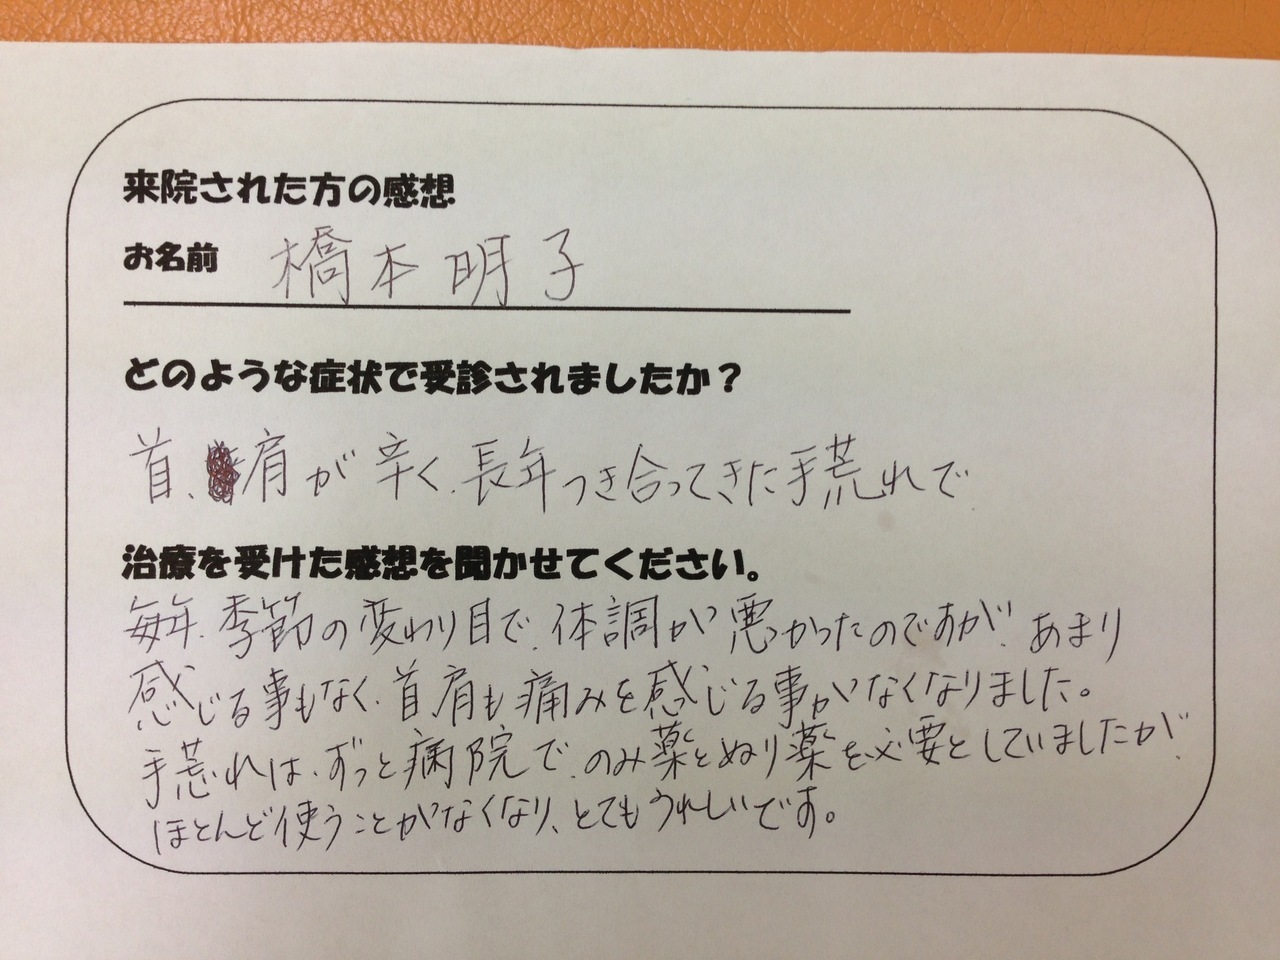 来院された方の感想
お名前 橋本明子
どのような症状で受診されましたか？
首、肩が辛く、長年つき合ってきた手荒れで
治療を受けた感想を聞かせてください。
毎年、季節の変わり目で、体調が悪かったのですが、あまり
感じる事もなく、首、肩も痛みを感じる事がなくなりました。
手荒れは、ずっと病院で、のみ薬とぬり薬を必要としていましたが、
ほとんど使うことがなくなり、とてもうれしいです。